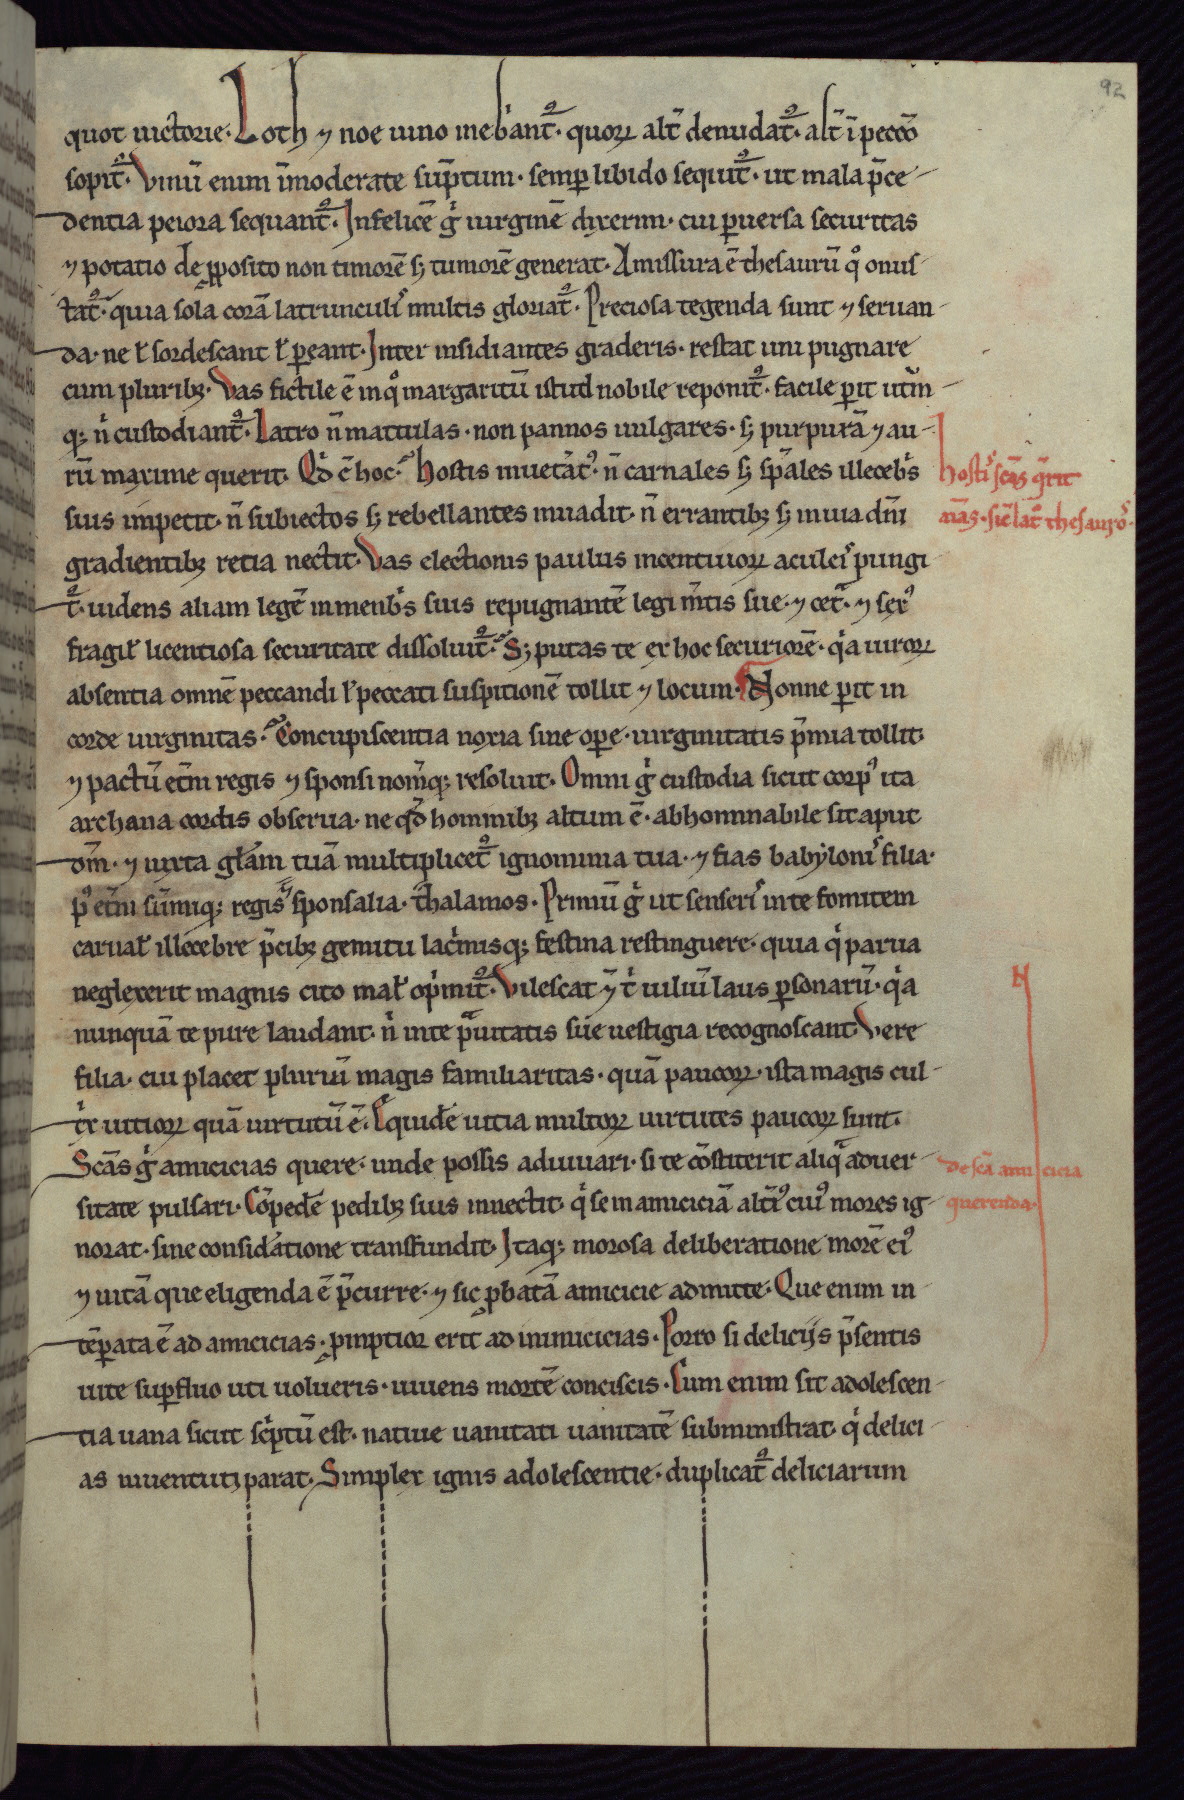 92
quot uictorie. Loth ⁊ noe uino inebˢant᷑. quoꝝ alt̄ denudat᷑. alt̄ ī pecc̄o
sopit᷑. Vinū enim īmoderate sūptum. semp̲ libido sequit᷑. ut mala p̄ce-
dentia peiora sequant᷑. Infelicē g̊ uirginē dixerim. cui puersa securitas
⁊ potatio de pposito non timorē sꝫ tumorē generat. Amissura ē thesaurū qͦ onus-
tat᷑. quia sola corā latrunculiˢ multis gloriat᷑. Preciosa tegenda sunt ⁊ seruan-
da. ne ł sordescant ł peant. Inter insidiantes graderis. restat uni pugnare
cum pluribꝫ. Vas fictile ē in qͦ margaritū istud nobile reponit᷑. facile pit utrū-
qꝫ nͥ custodiant᷑. Latro n̄ mattulas. non pannos uulgares. sꝫ purpurā ⁊ au-
rū maxime querit. Qd̄ ē hoc. Hostis inuetat᷒. n̄ carnales sꝫ sp̄ales illecebˢs
suis impetit. n̄ subiectos sꝫ rebellantes inuadit. n̄ errantibꝫ sꝫ in uia dn̄i
gradientibꝫ retia nectit. Vas electionis paulus incentiuoꝝ aculeiˢ pungi
t᷑. uidens aliam legē in menbˢs suis repugnantē legi m̄tis sue. ⁊ cet̄. ⁊ sex᷒
fragił licentiosa securitate dissoluit᷑. Sꝫ putas te ex hoc securiorē. qͣa uiroꝝ
absentia omnē peccandi ł peccati suspitionē tollit ⁊ locum. Nonne pit in
corde uirginitas. Concupiscentia noxia sine ope. uirginitatis p̄mia tollit.
⁊ pactū et̄ni regis ⁊ sponsi nom̄qꝫ resoluit. Omni g̊ custodia sicut corp᷒ ita
archana cordis obserua. ne qd̄ hominibꝫ altum ē. abhominabile sit aput
dm̄. ⁊ iuxta głam tuā multiplicet᷑ ignominia tua. ⁊ fias babyloniˢ filia.
p᷒ et̄ni sūmiqꝫ regis sponsalia. thalamos. Primū g̊ ut senseriˢ in te fomitem
carnał illecebre p̄cibꝫ gemitu lacͥmisqꝫ festina restinguere. quia qͥ parua
neglexerit magnis cito mał opͥmit᷑. Vilescat ⁊ tͥ uiliū laus psonarū. qͣa
nunquā te pure laudant. nͥ in te pͣuitatis sue uestigia recognoscant. Vere
filia. cui placet pluriū magis familiaritas. quā paucoꝝ. ista magis cul-
tͥx uitioꝝ quā uirtutū ē. Eqͥdē uitia multoꝝ uirtutes paucoꝝ sunt.
Sc̄as g̊ amicicias quere. unde possis adiuuari. si te cōstiterit aliqͣ aduer-
sitate pulsari. Cōpedē pedibꝫ suis innectit. qͥ se in amiciciā alt̄i᷒ cui᷒ mores ig-
norat. sine consid̄atione transfundit. Itaqꝫ morosa deliberatione morē ei᷒
⁊ uitā que eligenda ē p̄curre. ⁊ sic pbatā amicicie admitte. Que enim in
tēpata ē ad amicicias. pmptior erit ad inimicicias. Porro si delicijs p̄sentis
uite supfluo uti uolueris. uiuens mortē consciscis. Cum enim sit adolescen-
tia uana sicut scͥptū est. natiue uanitati uanitatē subministrat. qͥ delici-
as iuuentuti parat. Simplex ignis adolescentie. duplicat᷑ deliciarum
hostiˢ sc̄as q̄rit
aīas. sic̄ lat᷒ thesauꝝ.
N
de sc̄a amicicia
querenda.